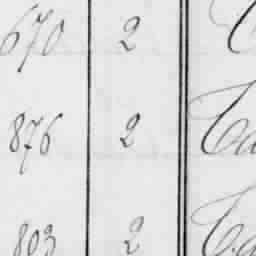 670 2
876 2 Ca
803 2 Ca